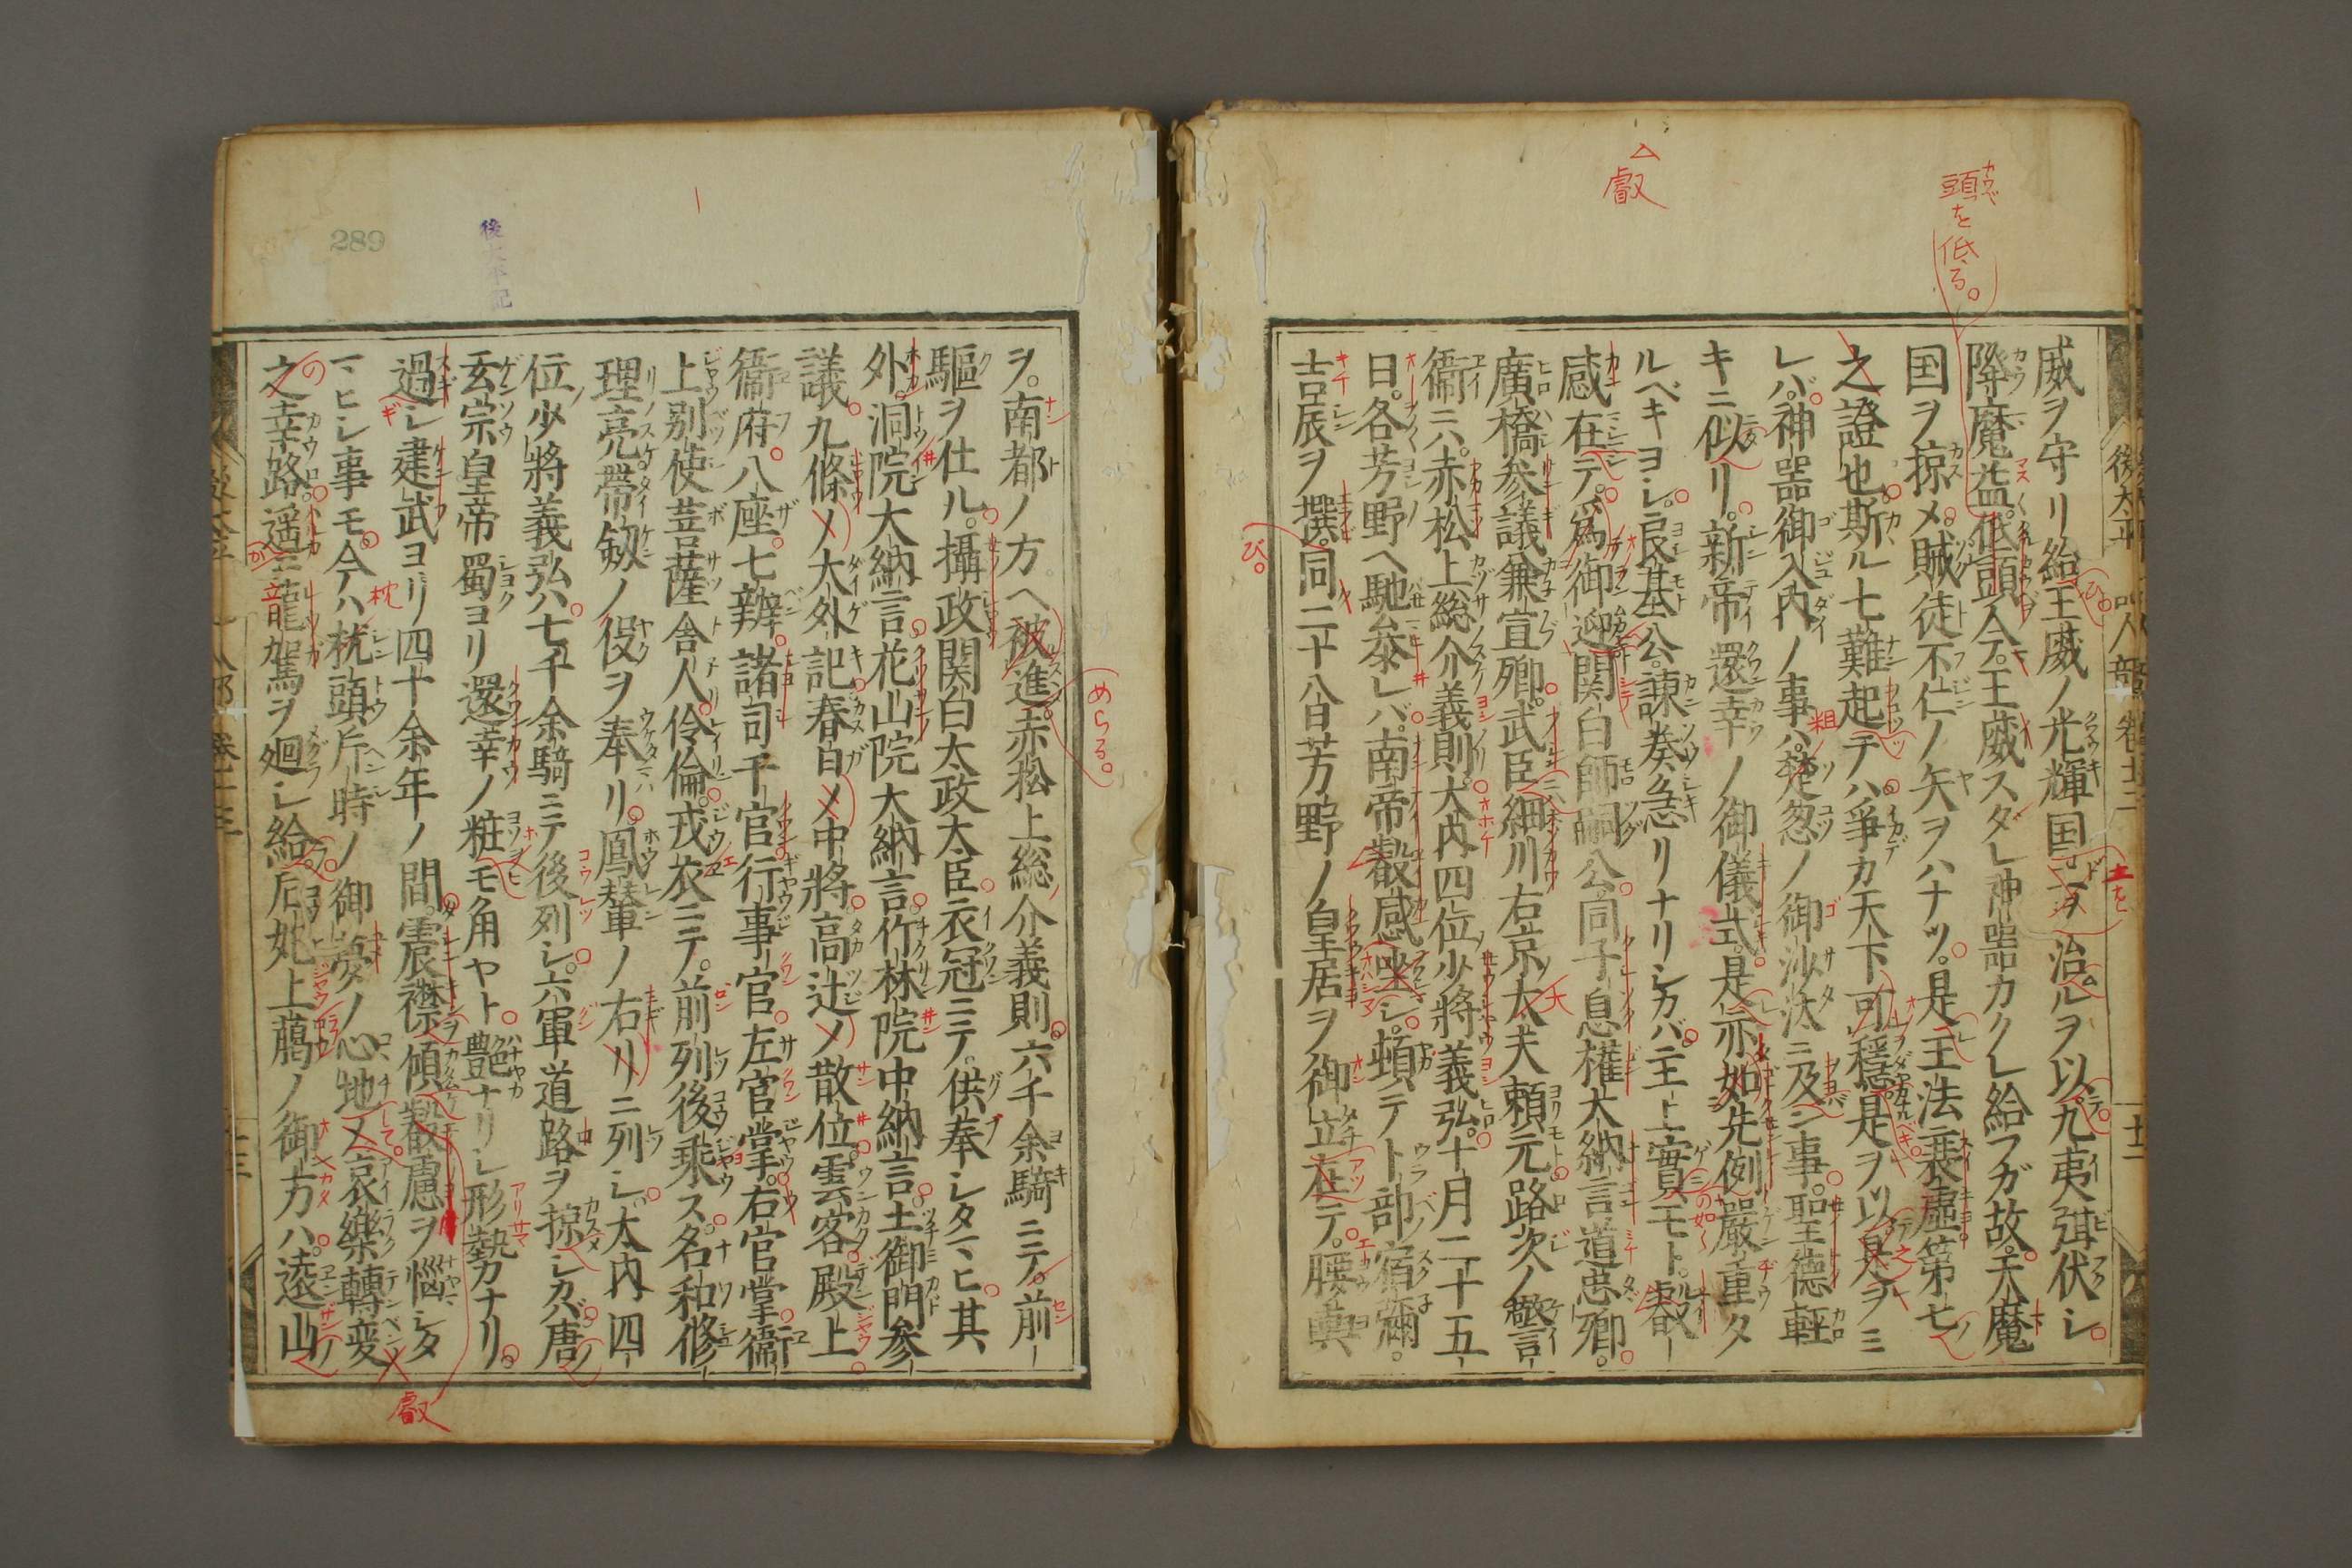 頭を低る。
叡
威ヲ守リ給王威ノ光輝国ヲ治ルヲ以九夷弭伏シ
降魔益低頭今王威スタレ神器カクレ給フガ故天魔
国ヲ掠メ賊徒不仁ノ矢ヲハナツ是王法衰虚第七
之證也斯ル七難起テハ爭カ天下可穏是ヲ以是ヲミ
レバ神器御入内ノ事ハ楚忽ノ御沙汰ニ及ン事聖徳軽
キニ似リ新帝還幸ノ御儀式是亦如先例嚴重タ
ルベキヨシ良基公諫奏急リナリシカバ主上實モト叡
感在テ爲御迎関白師嗣公同子息權大納言道忠卿
廣橋参議兼宣卿武臣細川右京太夫頼元路次ノ警
衞ニハ赤松上総介義則大内四位少將義弘十月二十五
日各芳野ヘ馳参レバ南帝叡感座シ頓テト部宿禰
吉辰ヲ撰同二十八日芳野ノ皇居ヲ御立在テ腰輿
ヲ南都ノ方ヘ被進赤松上総介義則六千余騎ニテ前
駆ヲ仕ル攝政関白太政太臣衣冠ニテ供奉シタマヒ其
外洞院大納言花山院大納言竹林院中納言土御門参
議九條ノ大外記春日ノ中將高辻ノ散位雲客殿上
衞府八座七辨諸司千官行事官左官掌右官掌衞
上別使菩薩舎人伶倫戎衣ニテ前列後乘ス名和修
理亮帶劔ノ役ヲ奉リ鳳輦ノ右リニ列シ大内四
位少將義弘ハ七千余騎ニテ後列シ六軍道路ヲ掠シカバ唐
玄宗皇帝蜀ヨリ還幸ノ粧モ角ヤト艶ナリシ形勢ナリ
過シ建武ヨリ四十余年ノ間震襟傾叡慮ヲ惱シタ
マヒシ事モ今ハ枕頭斤時ノ御夢ノ心地〆哀樂轉変
之幸路遥ニ龍駕ヲ廻シ給后妃上﨟ノ御方ハ遠山
めらる。
叡
289
後太平記